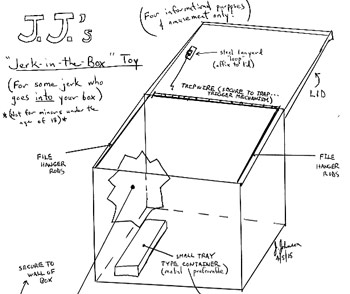 J.J.'s
"Jerk-in-the-Box" Toy
(For some jerk who
goes into your box)
*(Not for minors under the
age of 18)*
(For informational purposes
& amusement only!)
steel lanyard
loop
to lid)
LID
TRIPWIRE (SECURE TO TRAP...
TRIGGER MECHANISM)
FILE
HANGER
RODS
FILE
HANGER
RODS
SMALL TRAY
TYPE CONTAINER
(metal preferable)
SECURE TO
WALL OF
BOX